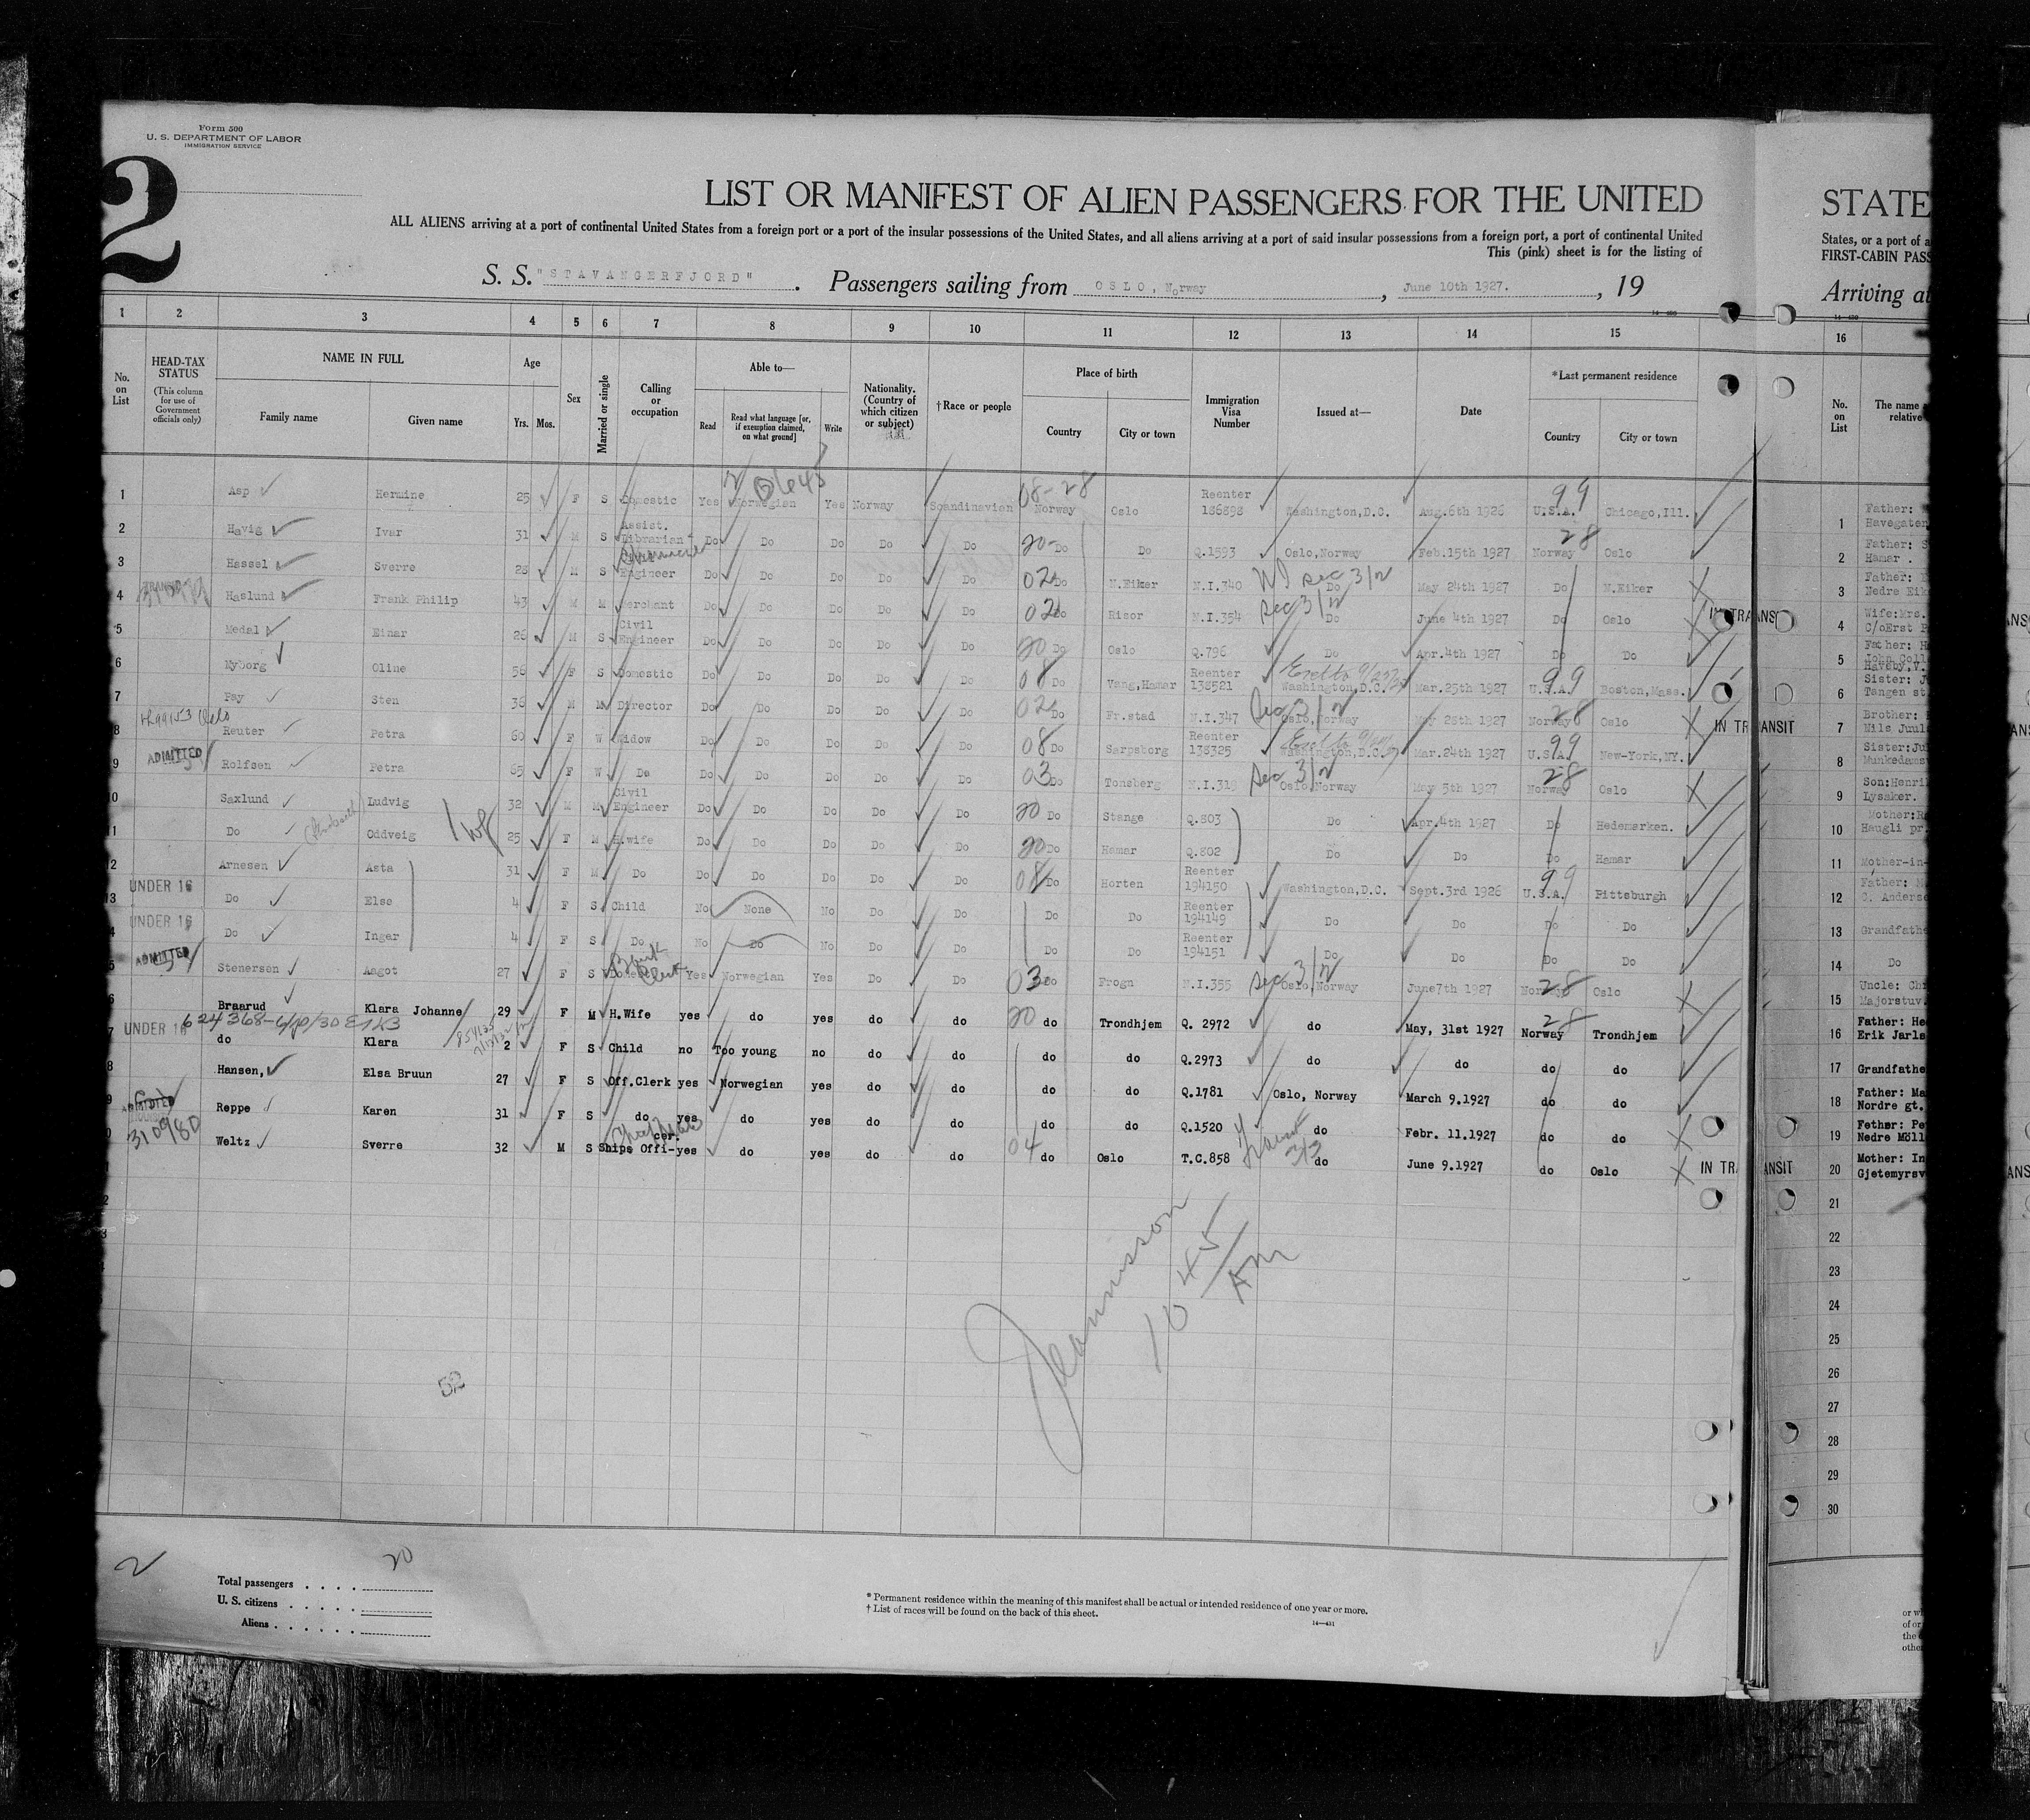 Form 500
U. S. DEPARTMENT OF LABOR
IMMIGRATION SERVICE
2
LIST OR MANIFEST OF ALIEN PASSENGERS FOR THE UNITED
ALL ALIENS arriving at a port of continental United States from a foreign port or a port of the insular possessions of the United States, and all aliens arriving at a port of said insular possessions from a foreign port, a port of continental United
This (pink) sheet is for the listing of
S. S. "STAVANGERFJORD". Passengers sailing from OSLO, Norway, June 10th 1927., 19
STATE
States, or a port of a
FIRST-CABIN PASS
Arriving at
1 2 3 4 5 6 7 8 9 10 11 12 13 14 15 16
No. on List
HEAD-TAX STATUS (This column for use of Government officials only)
NAME IN FULL Family name Given name
Age Yrs. Mos.
Sex
Married or single
Calling or occupation
Able to— Read Read what language [or, if exemption claimed, on what ground] Write
Nationality. (Country of which citizen or subject)
†Race or people
Place of birth Country City or town
Immigration Visa Number
Issued at—
Date
*Last permanent residence Country City or town
No. on List The name relative
1 Asp Hermine 25 F S Domestic Yes Norwegian Yes Norway Scandinavian 08-28 Norway Oslo Reenter 186898 Washington,D.C. Aug.6th 1926 99 U.S.A. Chicago,Ill. 1 Father: Havegaten
2 Havig Ivar 31 M S Assist. Librarian Do Do Do Do Do 20 Do Do Q.1593 Oslo,Norway Feb.15th 1927 28 Norway Oslo 2 Father: S Hamar .
3 Hassel Sverre 28 M S Engineer Do Do Do Do Do 02 Do N.Eiker N.I.340 NI sec 3/2 Do May 24th 1927 Do N.Eiker 3 Father: Nedre Eik
4 Haslund Frank Philip 43 M M Merchant Do Do Do Do Do 02 Do Risor N.I.354 Sec 3/2 Do June 4th 1927 Do Oslo IN TRANSIT 4 Wife:Mrs. C/oErst P
5 Medal Einar 26 M S Civil Engineer Do Do Do Do Do 20 Do Oslo Q.796 Do Apr.4th 1927 Do Do 5 Father: H John Coll
6 Nyborg Oline 56 F S Domestic Do Do Do Do Do 08 Do Vang,Hamar Reenter 138521 Washington,D.C. Mar.25th 1927 99 U.S.A. Boston,Mass. 6 Haveby,V. Sister: J Tangen st
7 Pay Sten 36 M M Director Do Do Do Do Do 02 Do Fr.stad N.I.347 Sec 3/2 Oslo,Norway May 28th 1927 Norway 28 Oslo IN TRANSIT 7 Brother: Nils Juul
8 Reuter Petra 60 F W Widow Do Do Do Do Do 08 Do Sarpsborg Reenter 138325 Washington,D.C. Mar.24th 1927 99 U.S.A. New-York,NY. 8 Sister:Ju Munkedams
ADMITTED
9 Rolfsen Petra 65 F W Do Do Do Do Do Do 03 Do Tonsberg N.I.319 Sec 3/2 Oslo,Norway May 5th 1927 28 Norway Oslo 9 Son:Henri Lysaker.
10 Saxlund Ludvig 32 M M Civil Engineer Do Do Do Do Do 20 Do Stange Q.803 Do Apr.4th 1927 Do Hedemarken. 10 Mother:R Haugli pr.
11 Do Oddveig 25 F M H.wife Do Do Do Do Do 20 Do Hamar Q.802 Do Do Do Hamar 11 Mother-in-
12 Arnesen Asta 31 F M Do Do Do Do Do Do 08 Do Horten Reenter 194150 Washington,D.C. Sept.3rd 1926 99 U.S.A. Pittsburgh 12 Father: C. Anderse
UNDER 16
13 Do Else 4 F S Child No None No Do Do Do Do Reenter 194149 Do Do Do Do 13 Grandfathe
UNDER 16
14 Do Inger 4 F S Do No Do No Do Do Do Do Reenter 194151 Do Do Do Do 14 Do
ADMITTED
15 Stenersen Aagot 27 F S Bank Clerk Yes Norwegian Yes Do Do 03 Do Frogn N.I.355 Sec 3/2 Oslo,Norway June7th 1927 Norway 28 Oslo 15 Uncle: Chr Majorstuv.
16 Braarud Klara Johanne 29 F M H.Wife yes do yes do do 20 do Trondhjem Q. 2972 do May, 31st 1927 28 Norway Trondhjem 16 Father: He Erik Jarls
UNDER 16
17 do Klara 2 F S Child no Too young no do do do do Q.2973 do do do do 17 Grandfathe
18 Hansen, Elsa Bruun 27 F S Off.Clerk yes Norwegian yes do do do do Q.1781 Oslo, Norway March 9.1927 do do 18 Father: Ma Nordre gt.
19 Reppe Karen 31 F S do yes do yes do do do do Q.1520 do Febr. 11.1927 do do 19 Father: Pe Nedre Möll
310980
20 Weltz Sverre 32 M S Ships Officer. yes do yes do do 04 do Oslo T.C.858 do June 9.1927 do Oslo IN TRANSIT 20 Mother: In Gjetemyrsv
21
22
23
24
25
26
27
28
29
30
10 45/AM
52
2
Total passengers . . . . 20
U. S. citizens . . . . .
Aliens . . . . . .
* Permanent residence within the meaning of this manifest shall be actual or intended residence of one year or more.
† List of races will be found on the back of this sheet.
14—431